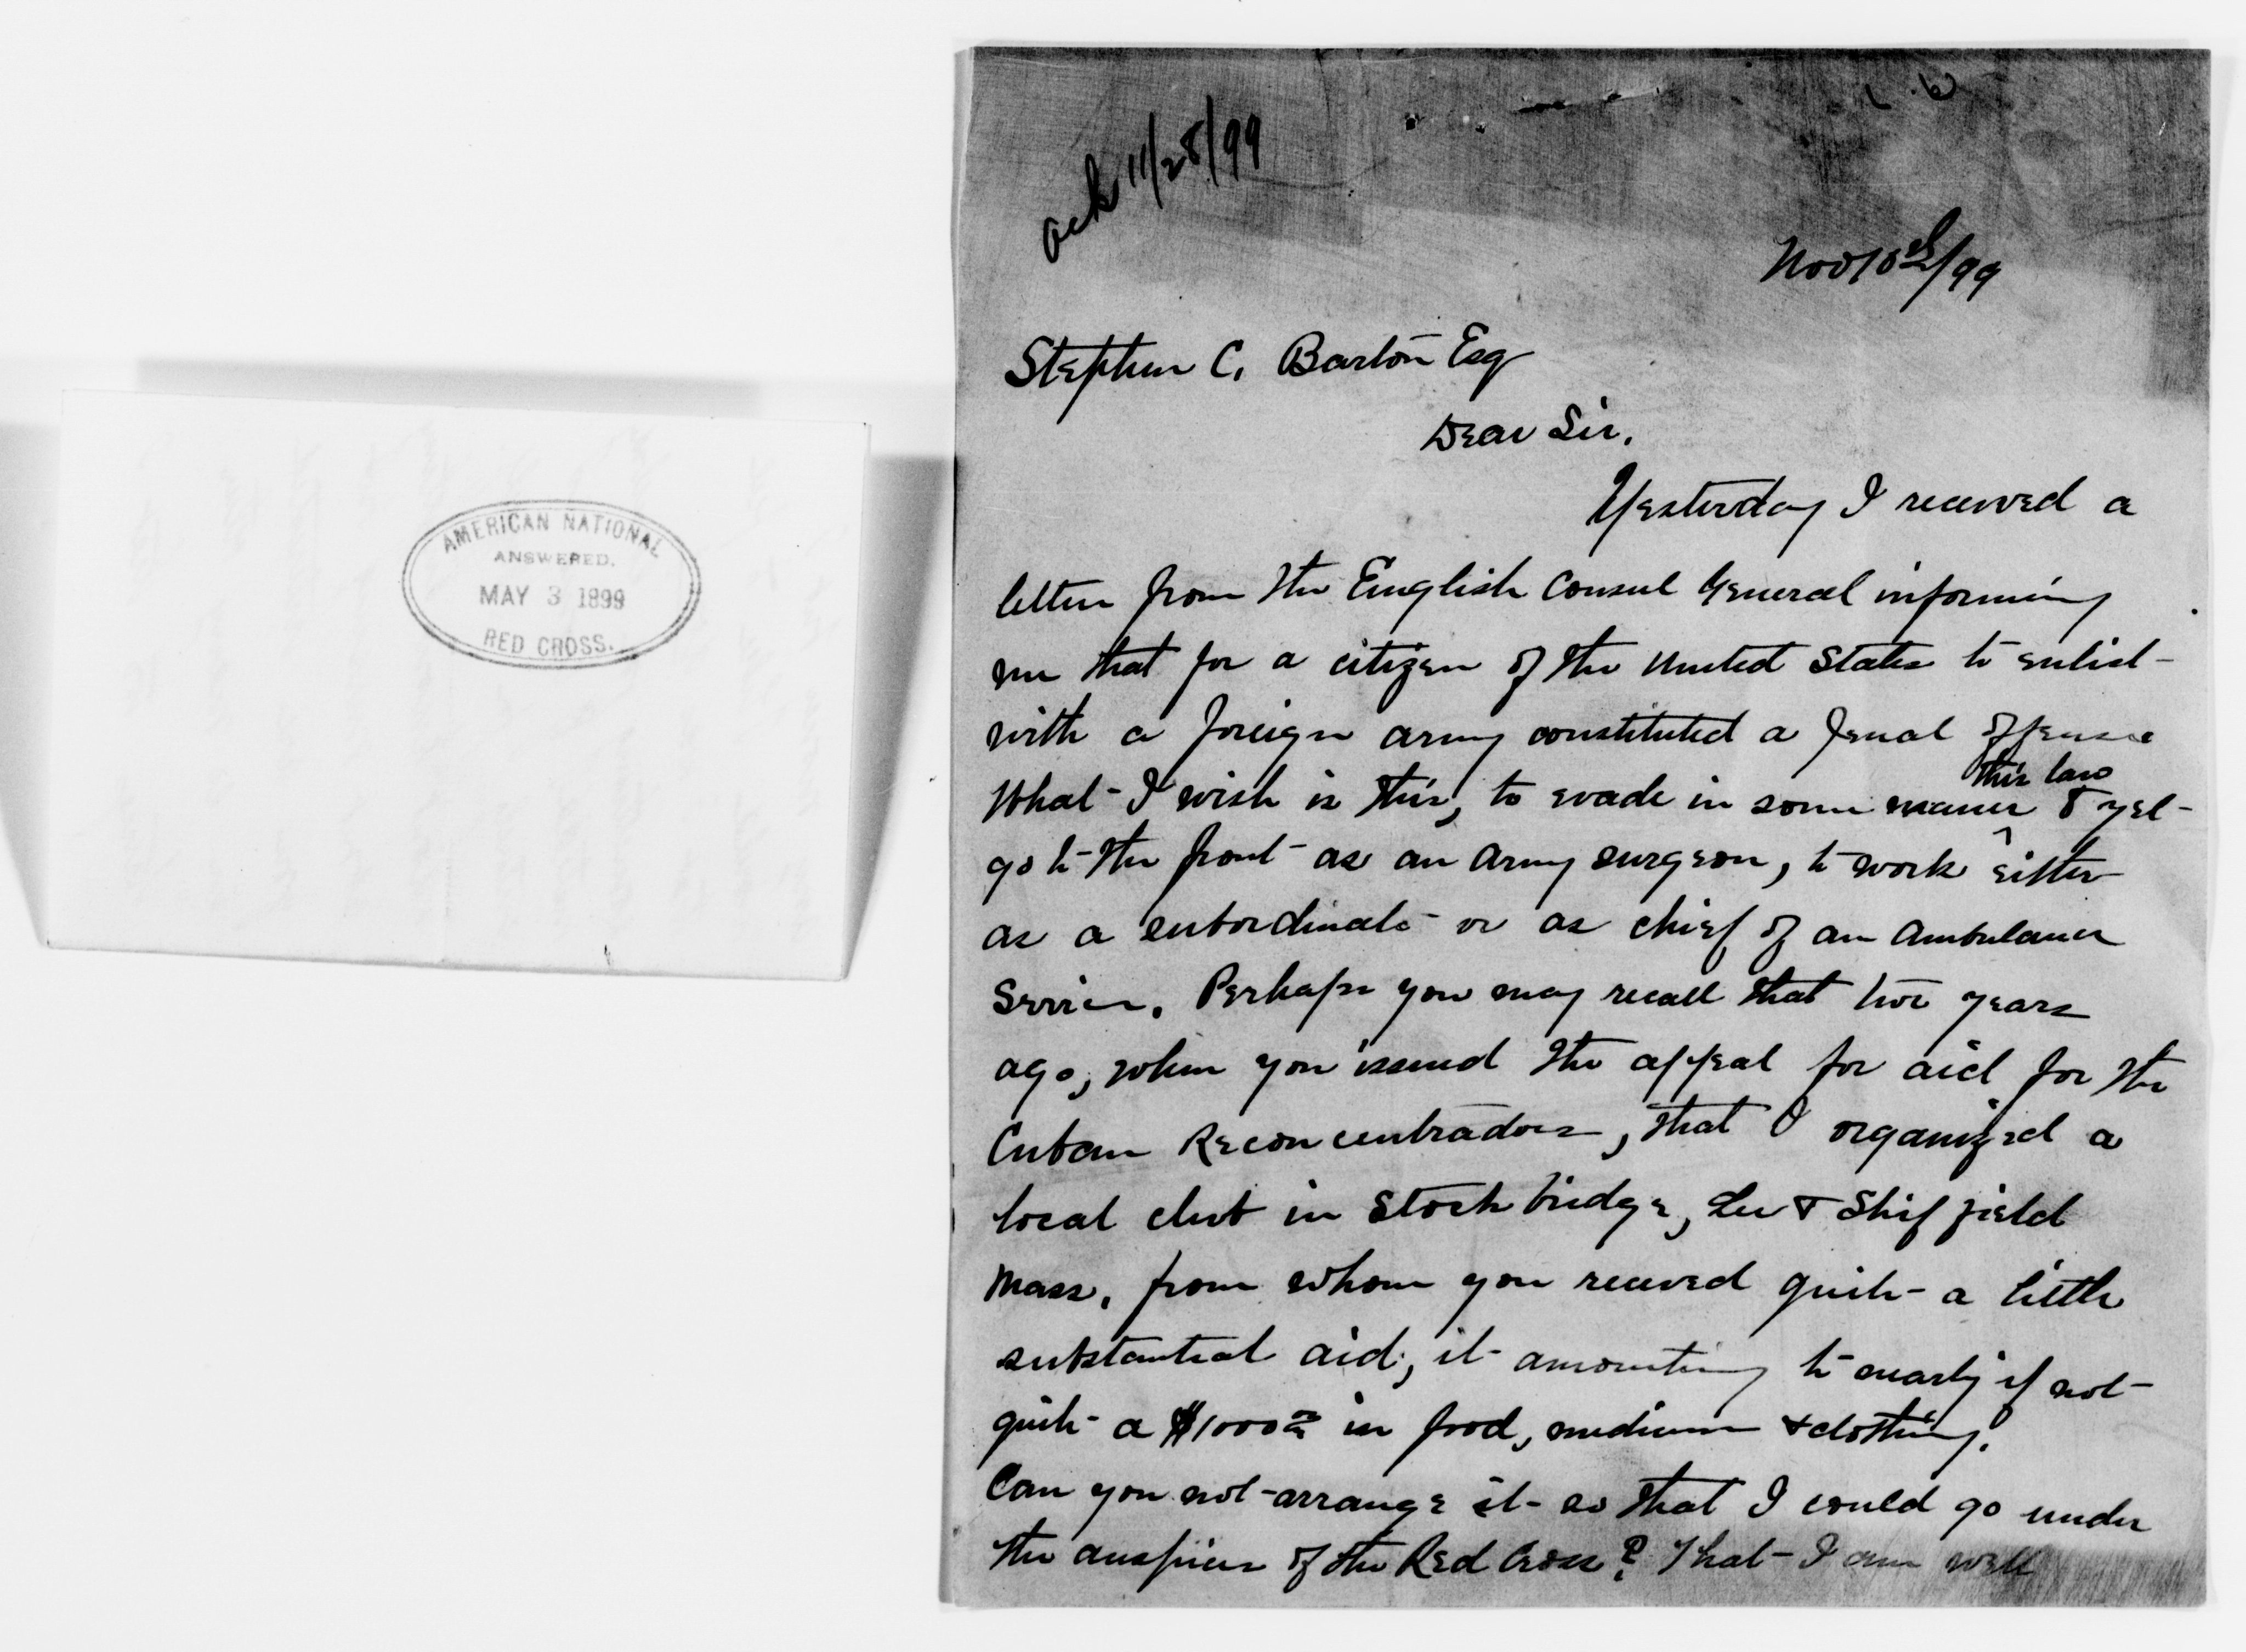 AMERICAN NATIONAL
ANSWERED.
MAY 3 1899
RED CROSS.
ack 11/28/99
Nov 10th/99
Stephen C. Barton Esq
Dear Sir,
Yesterday I received a
letter from the English Consul General informing
me that for a citizen of the United States to enlist
with a foreign army constituted a penal offense
What I wish is this, to evade in some maner this law & yet
go to the front as an Army surgeon, to work either
as a subordinate or as chief of an Ambulance
Service. Perhaps you may recall that two years
ago, when you issued the appeal for aid for the
Cuban Reconcentrados, that I organized a
local club in Stockbridge, Lee & Sheffield
Mass, from whom you received quite a little
substantial aid; it amounting to nearly if not
quite a $1000 00 in food, medicine & clothing.
Can you not arrange it so that I could go under
the auspices of the Red Cross? That I am well